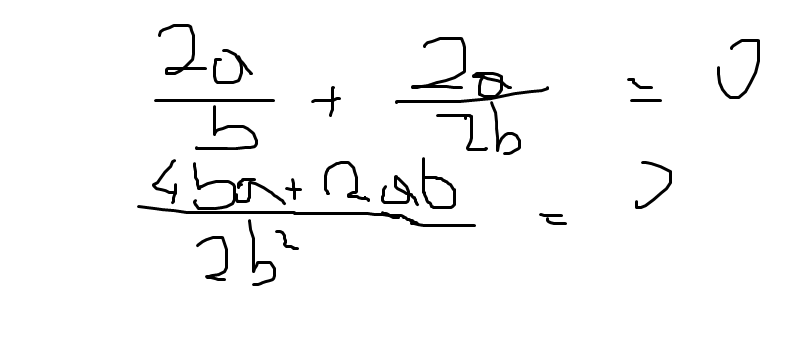 2a/b + 2a/2b = 0
(4ba + 2ab)/2b² = 0